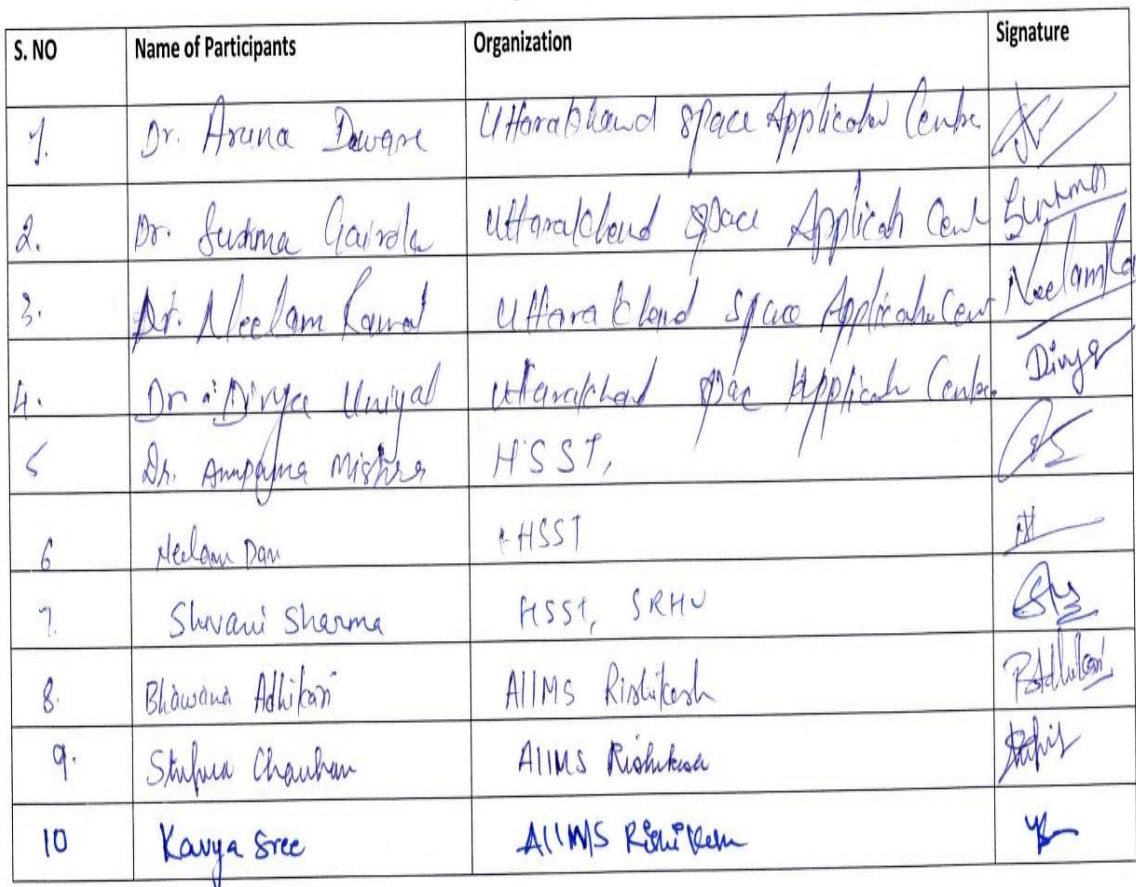 S. NO Name of Participants Organization Signature
1. Dr. Aruna Uttarakhand Space Application Centre
2. Dr. Sushma Gairola Uttarakhand Space Applicatn Cent Sushma
3. Dr. Neelam Rawat Uttarakhand Space Applicatn Cent Neelam
4. Dr. Divya Uniyal Uttarakhand Space Applicatn Centre Divya
5 Dr. Anupama Mishra HSST,
6 Neelam HSST
7. Shivani Sharma HSST, SRHU
8. Bhawana Adhikari AIIMS Rishikesh
9. Chauhan AIIMS Rishikesh
10 Kavya Sree AIIMS Rishikesh